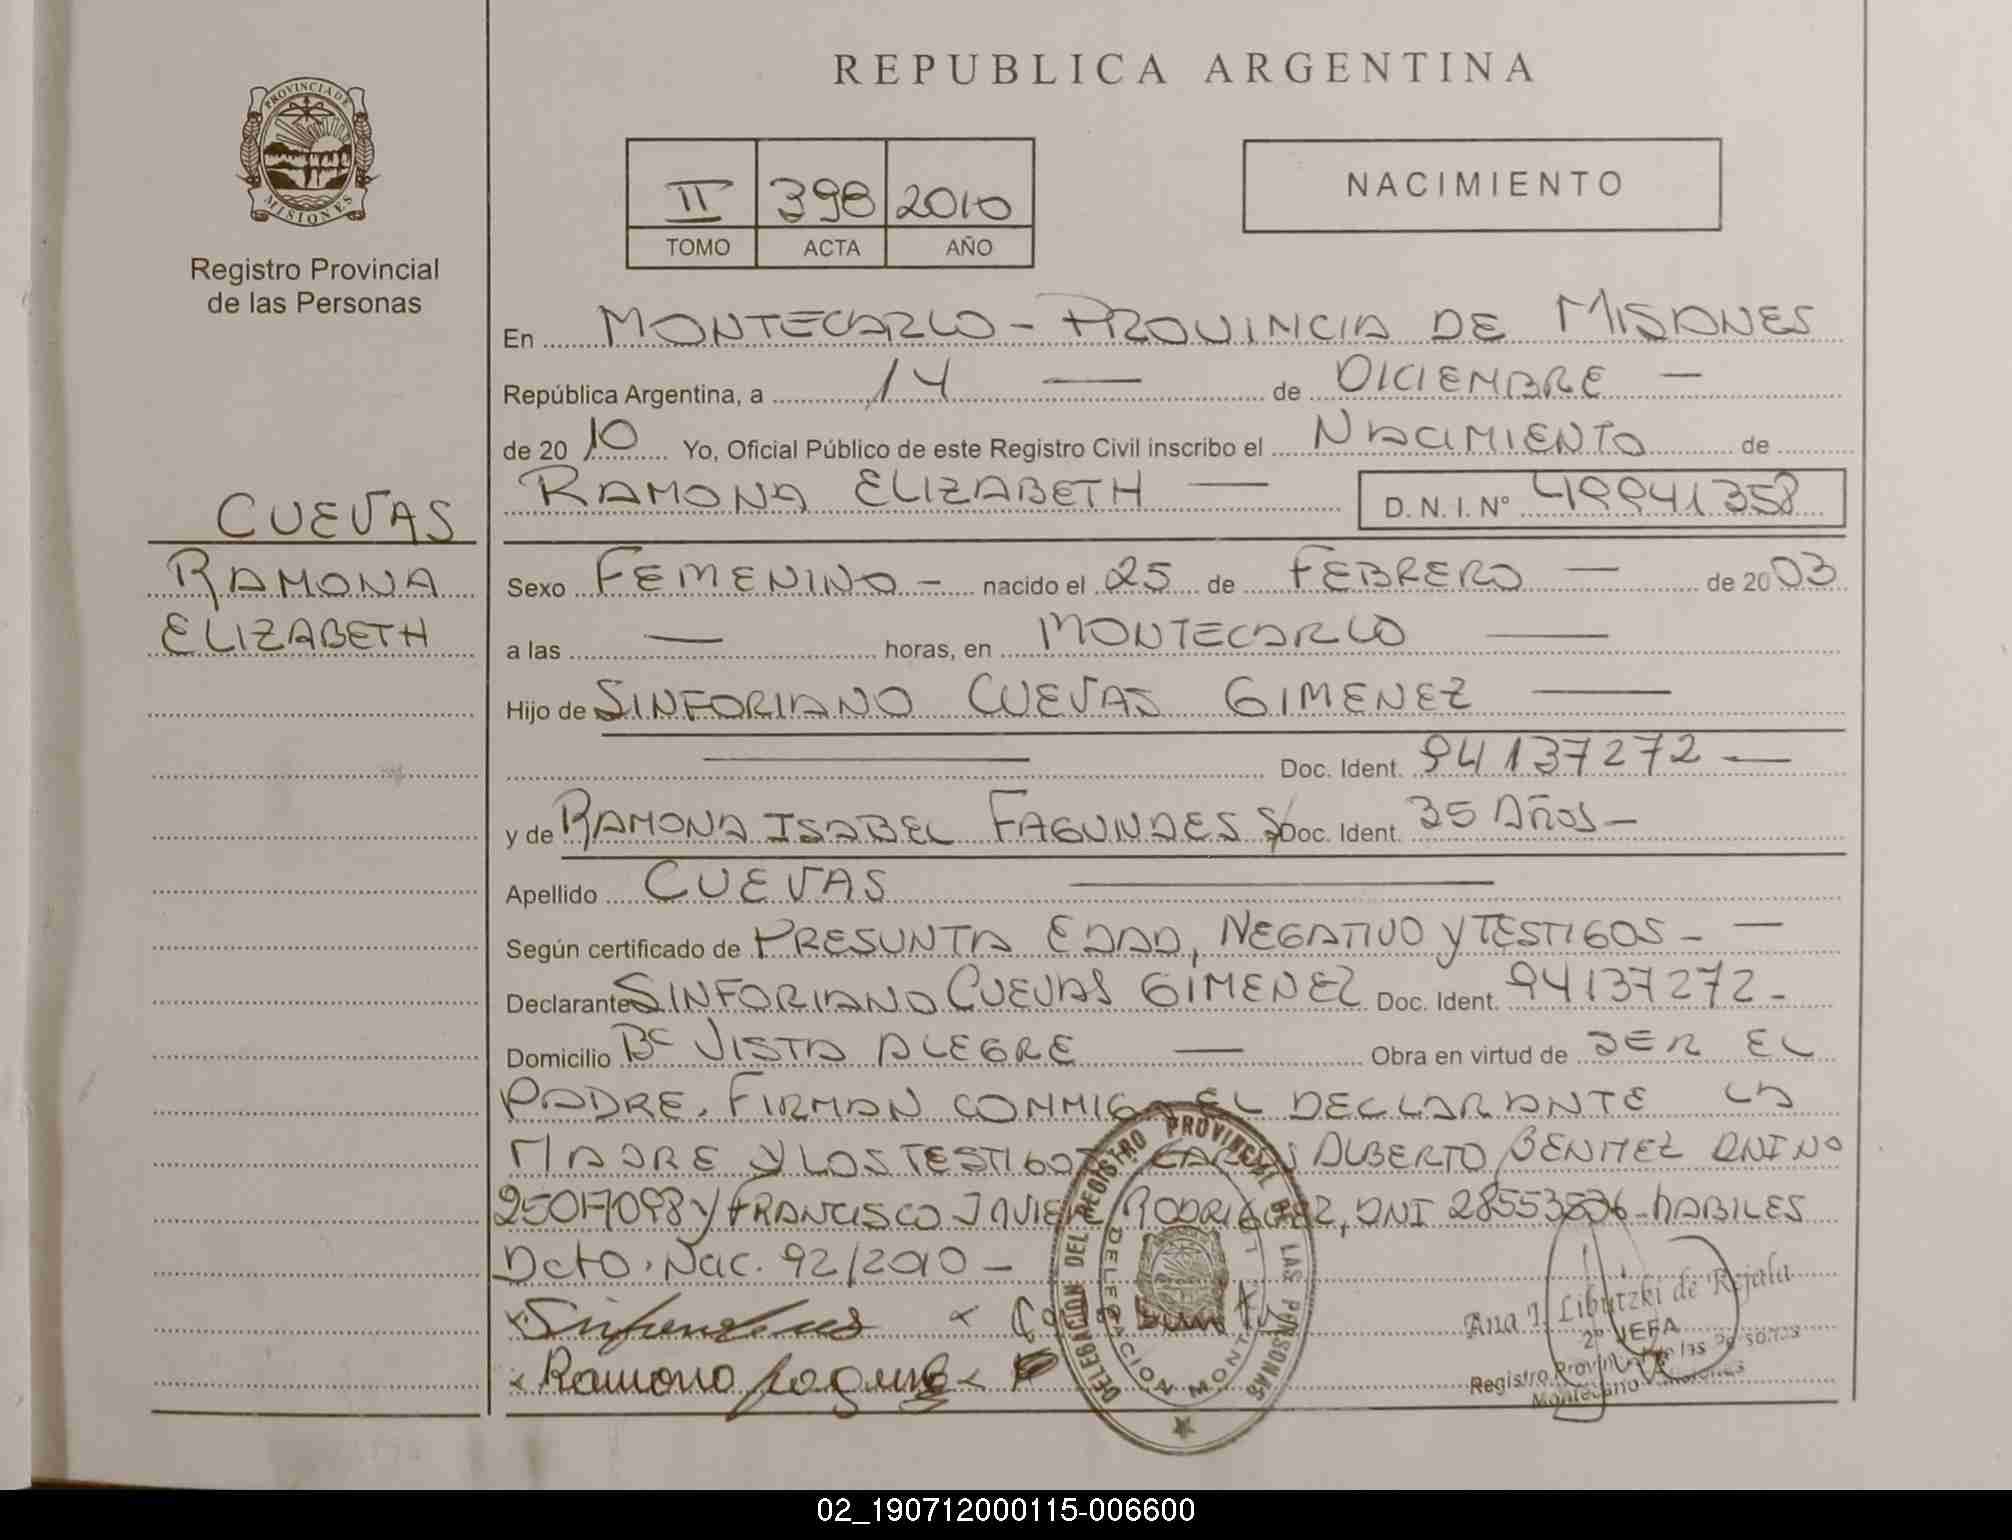 REPUBLICA ARGENTINA
PROVINCIA DE
MISIONES
Registro Provincial
de las Personas
II 398 2010
TOMO ACTA AÑO
NACIMIENTO
En MONTECARLO - PROVINCIA DE MISIONES
República Argentina, a 14 — de DICIEMBRE —
de 2010 Yo, Oficial Público de este Registro Civil inscribo el NACIMIENTO de
RAMONA ELIZABETH — D. N. I. Nº 49941358
CUEVAS
RAMONA
ELIZABETH
Sexo FEMENINO - nacido el 25 de FEBRERO — de 2003
a las — horas, en MONTECARLO —
Hijo de SINFORIANO CUEVAS GIMENEZ —
— Doc. Ident. 94137272 —
y de RAMONA ISABEL FAGUNDES S/Doc. Ident. 35 AÑOS -
Apellido CUEVAS —
Según certificado de PRESUNTA EDAD, NEGATIVO Y TESTIGOS - —
Declarante SINFORIANO CUEVAS GIMENEZ Doc. Ident. 94137272 -
Domicilio Bº VISTA ALEGRE — Obra en virtud de SER EL
PADRE. FIRMAN CONMIGO EL DECLARANTE LA
MADRE Y LOS TESTIGOS CARLOS ALBERTO BENITEZ DNI NO
25017098 Y FRANCISCO JAVIER RODRIGUEZ, DNI 28553536 - HABILES
Dcto. Nac. 92/2010 -
Ramona
DELEGACION DEL REGISTRO PROVINCIAL DE LAS PERSONAS
DELEGACION MONT
Ana I. Libutzki de Rejala
2º JEFA
Registro Provincial de las Personas
Montecarlo Misiones
02_190712000115-006600